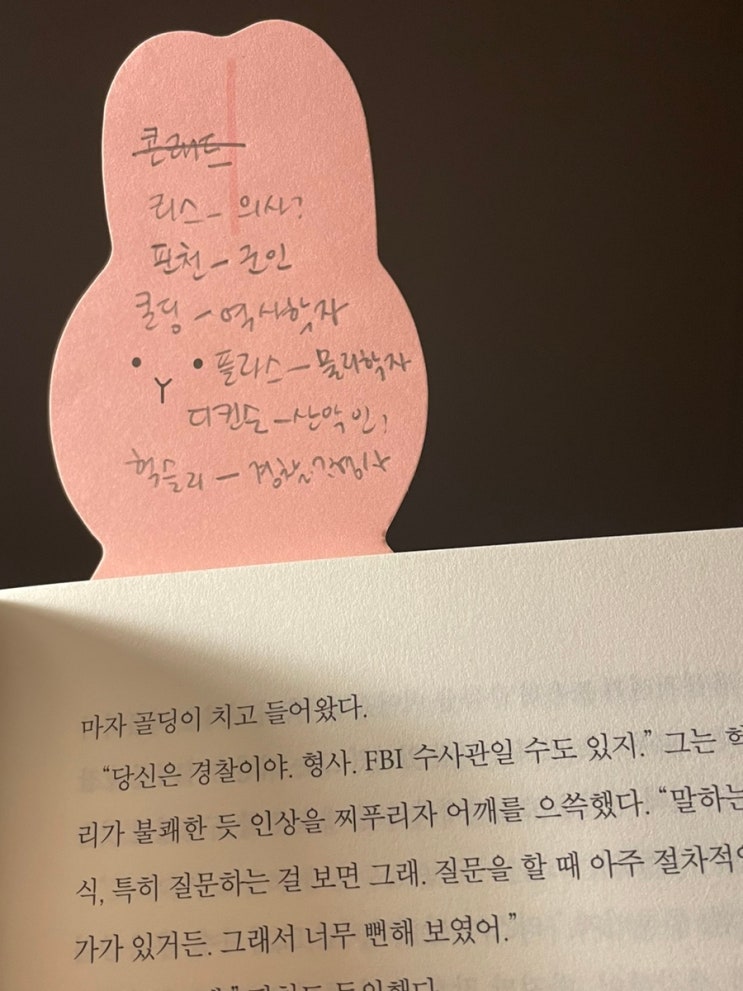 콘래드
리스 - 의사?
핀천 - 군인
골딩 - 역사학자
플라스 - 물리학자
디킨슨 - 산악인?
헉슬리 - 경찰
마자 골딩이 치고 들어왔다.
“당신은 경찰이야. 형사. FBI 수사관일 수도 있지.” 그는 헉
리가 불쾌한 듯 인상을 찌푸리자 어깨를 으쓱했다. “말하는
식, 특히 질문하는 걸 보면 그래. 질문을 할 때 아주 절차적인
가가 있거든. 그래서 너무 뻔해 보였어.”